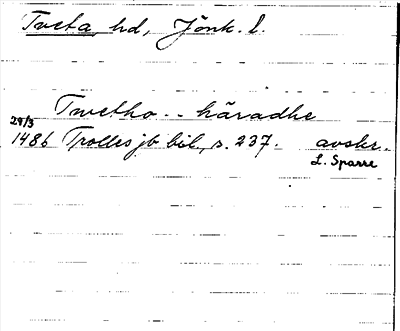 Tveta, hd, Jönk. l.
Twetho - - häradhe
29/3
1486 Trolles jb bil., s. 237. avskr.
L. Sparre